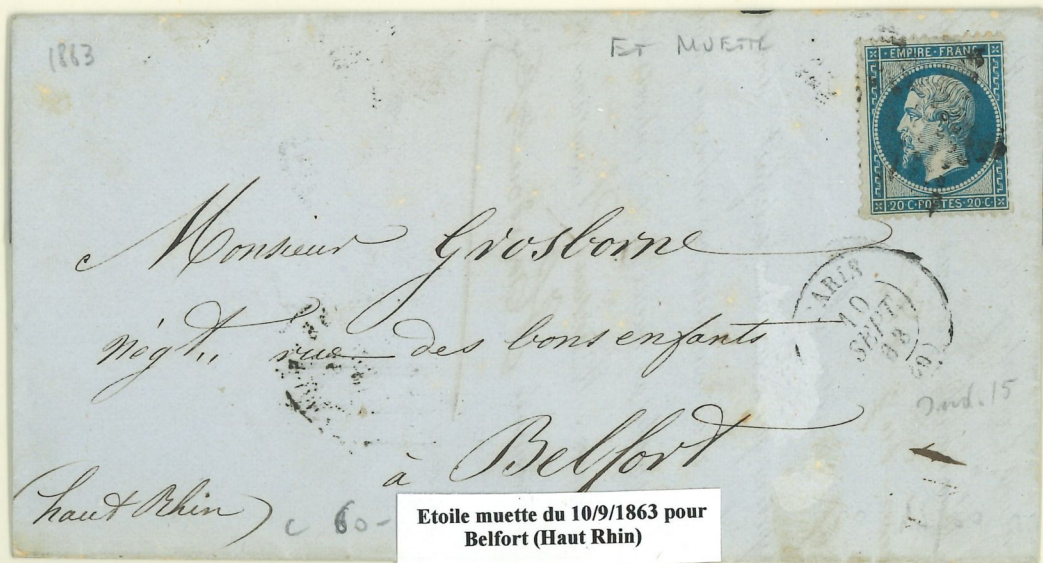 1863
ET MUETTE
EMPIRE · FRANC
20 C · POSTES · 20 C
Monsieur Grosborne
négt., rue des bons enfants
PARIS
10
SEPT.
63
à Belfort
(haut Rhin)
C 60-
Etoile muette du 10/9/1863 pour
Belfort (Haut Rhin)